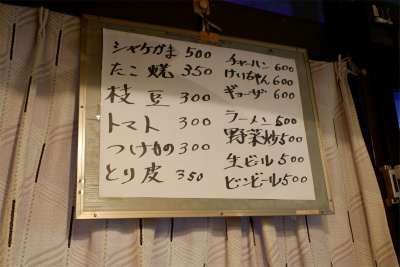 シャケかま 500
たこ焼 350
枝豆 300
トマト 300
つけもの 300
とり皮 350
チャーハン 600
けいちゃん 600
ギョーザ 600
ラーメン 500
野菜炒 500
生ビール 500
ビンビール 500